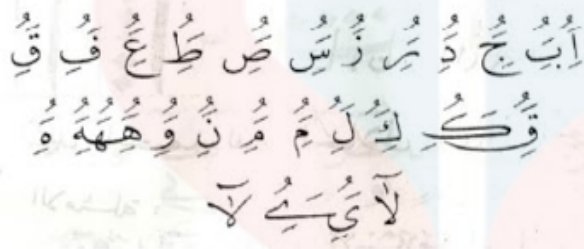 اَُِ بَُِ جَُِ دَُِ رَُِ زَُِ سَُِ صَُِ طَُِ عَُِ فَُِ قَُِ
قَُِ كَُِ لَُِ لَُِ مَُِ مَُِ نَُِ وَُِ هَُِ هَُِ هَُِ ةَُِ
لآ يَُِ ےَُِ لآ